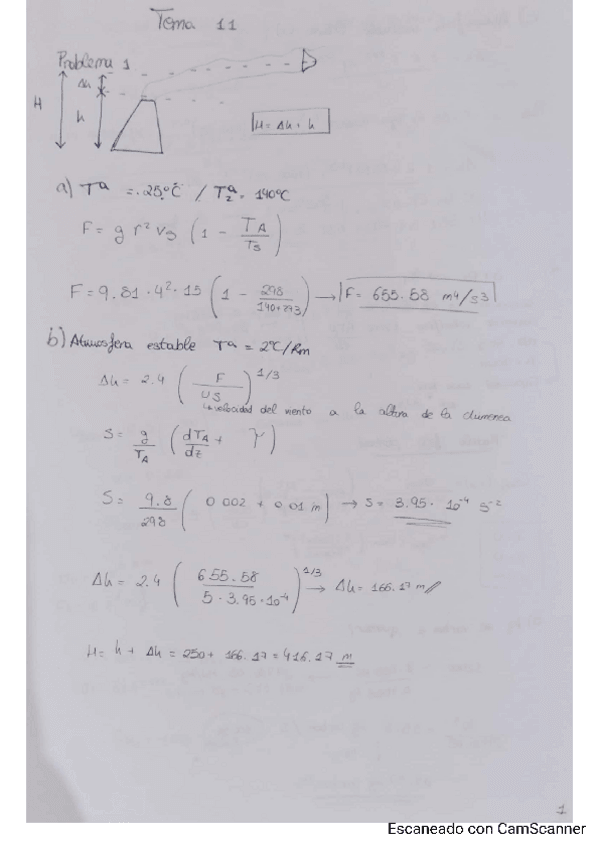 Tema 11
Problema 1
Δh
H
h
H = Δh + h
a) Tª = 25ºC / T₂ª = 140ºC
F = g r² vs (1 - TA/Ts)
F = 9.81 · 4² · 15 (1 - 298/140+273) → F = 655.58 m4/s3
b) Atmosfera estable Tª = 2ºC/Km
Δh = 2.4 (F/US)^1/3
↳ velocidad del viento a la altura de la chimenea
S = g/TA (dTA/dz + γ)
S = 9.8/298 (0.002 + 0.01 m) → S = 3.95 · 10⁻⁴ s⁻²
Δh = 2.4 (655.58/5 · 3.95 · 10⁻⁴)^1/3 → Δh = 166.17 m//
H = h + Δh = 250 + 166.17 = 416.17 m
1
Escaneado con CamScanner